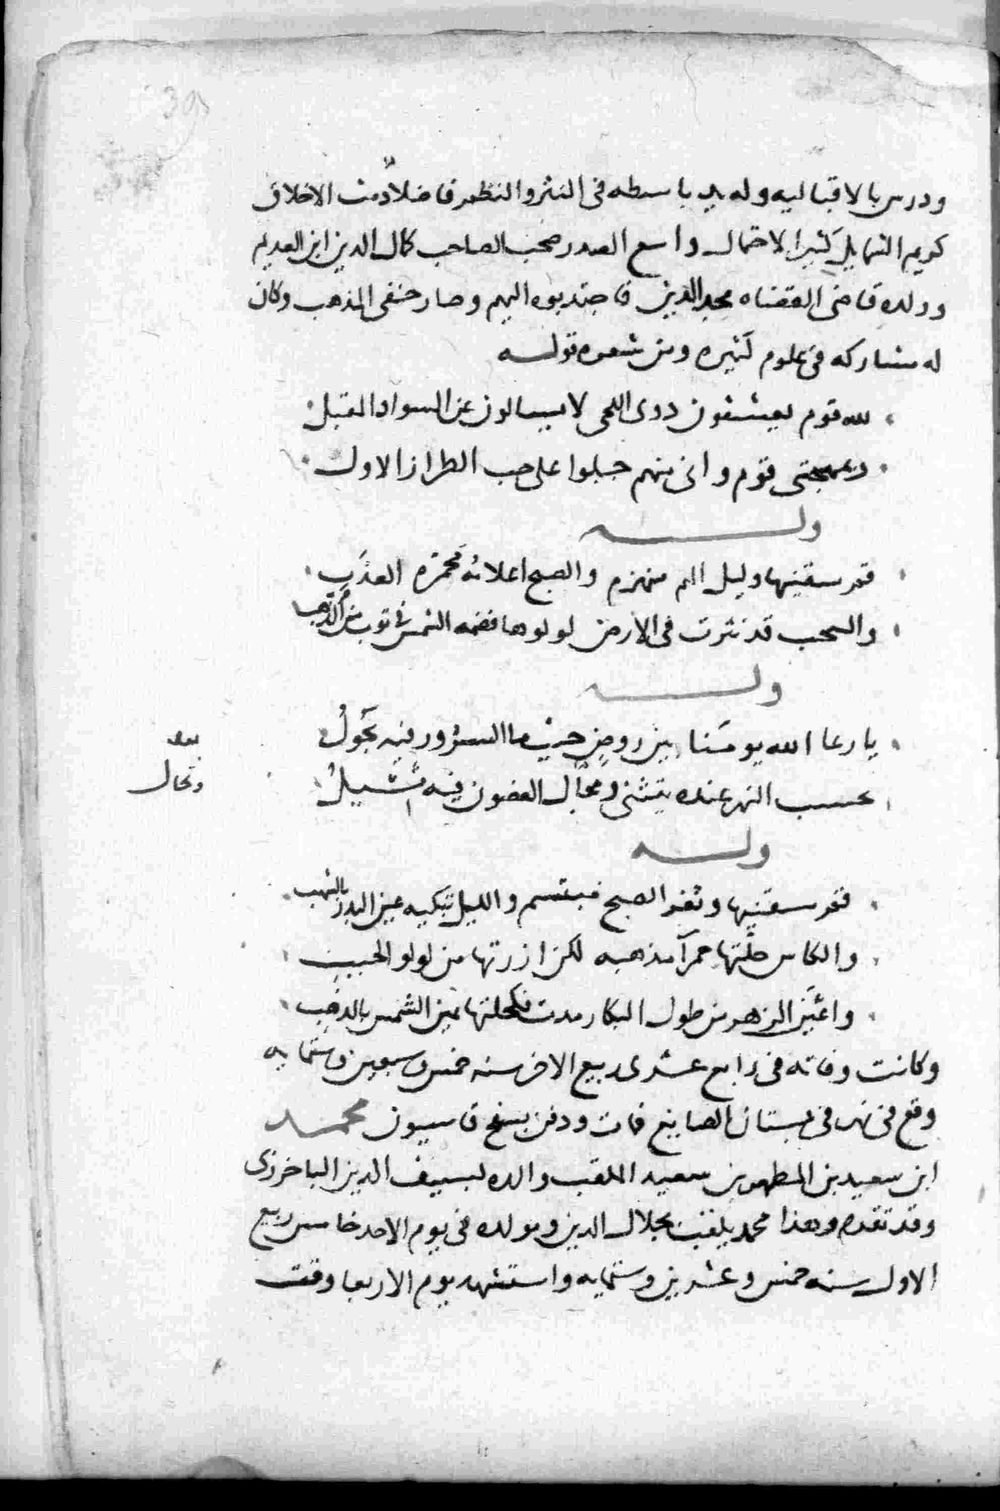 ودرس بالاقباليه وله يد باسطه فى النثر والنظم فاضلا دمث الاخلاق
كريم الشمايل كثير الاحتمال واسع الصدر صحب الصاحب كمال الدين ابن العديم
وولده قاضى القضاه مجد الدين فاجتذبوه اليهم وصار حنفى المذهب وكان
له مشاركه فى علوم كثيره ومن شعره قوله
لله قوم يعشقون ذوى اللحى لا يسالون عن السواد المقبل
وبمهجتى قوم وانى منهم جبلوا على حب الطراز الاول
وله
قم سقنيها وليل الهم منهزم والصبح اعلامه محمرة العذب
والسحب قد نثرت فى الارض لولوها فضمه الشمس فى ثوب من الذهب
وله
يا رعا الله يومنا بين روض حيث ما السرور فيه يجول
نحسب النهر عنده يتثنى ومجال الغضون فيه تشيل
وتخال
وله
قم سقنيها وثغر الصبح مبتسم والليل تبكيه عين البدر بالشهب
والكاس حلتها حمرآ مذهبه لكن ازرتها من لولو الحبب
واعين الزهر من طول البكا رمدت فكحلتها يمين الشمس بالذهب
وكانت وفاته فى رابع عشرى ربيع الاخر سنه خمس وسبعين وستمايه
وقع فى نهر فى بستان الصايغ فمات ودفن بسفح قاسيون محمد
ابن سعيد بن المطهر بن سعيد الملقب والده لسيف الدين الباخرزى
وقد تقدم وهذا محمد يلقب بجلال الدين ومولده فى يوم الاحد خامس ربيع
الاول سنه خمس وعشرين وستمايه واستشهد يوم الاربعا وقت